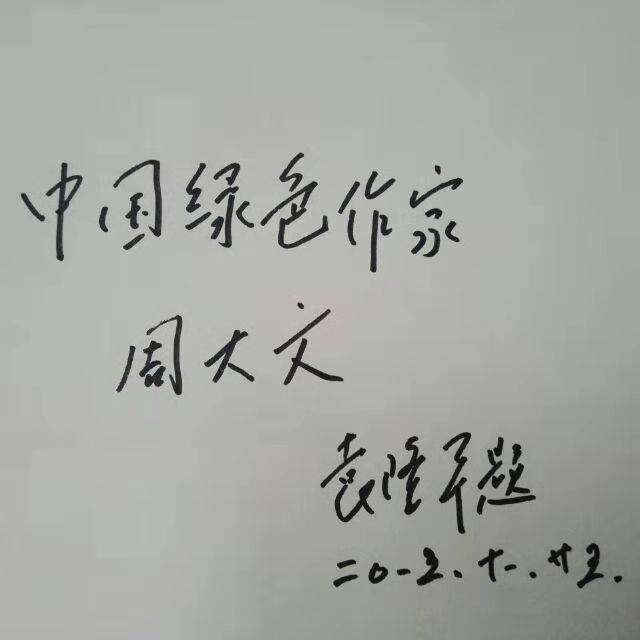 中国绿色作家
周大文
袁隆平题
二0一2.十一.廿2.